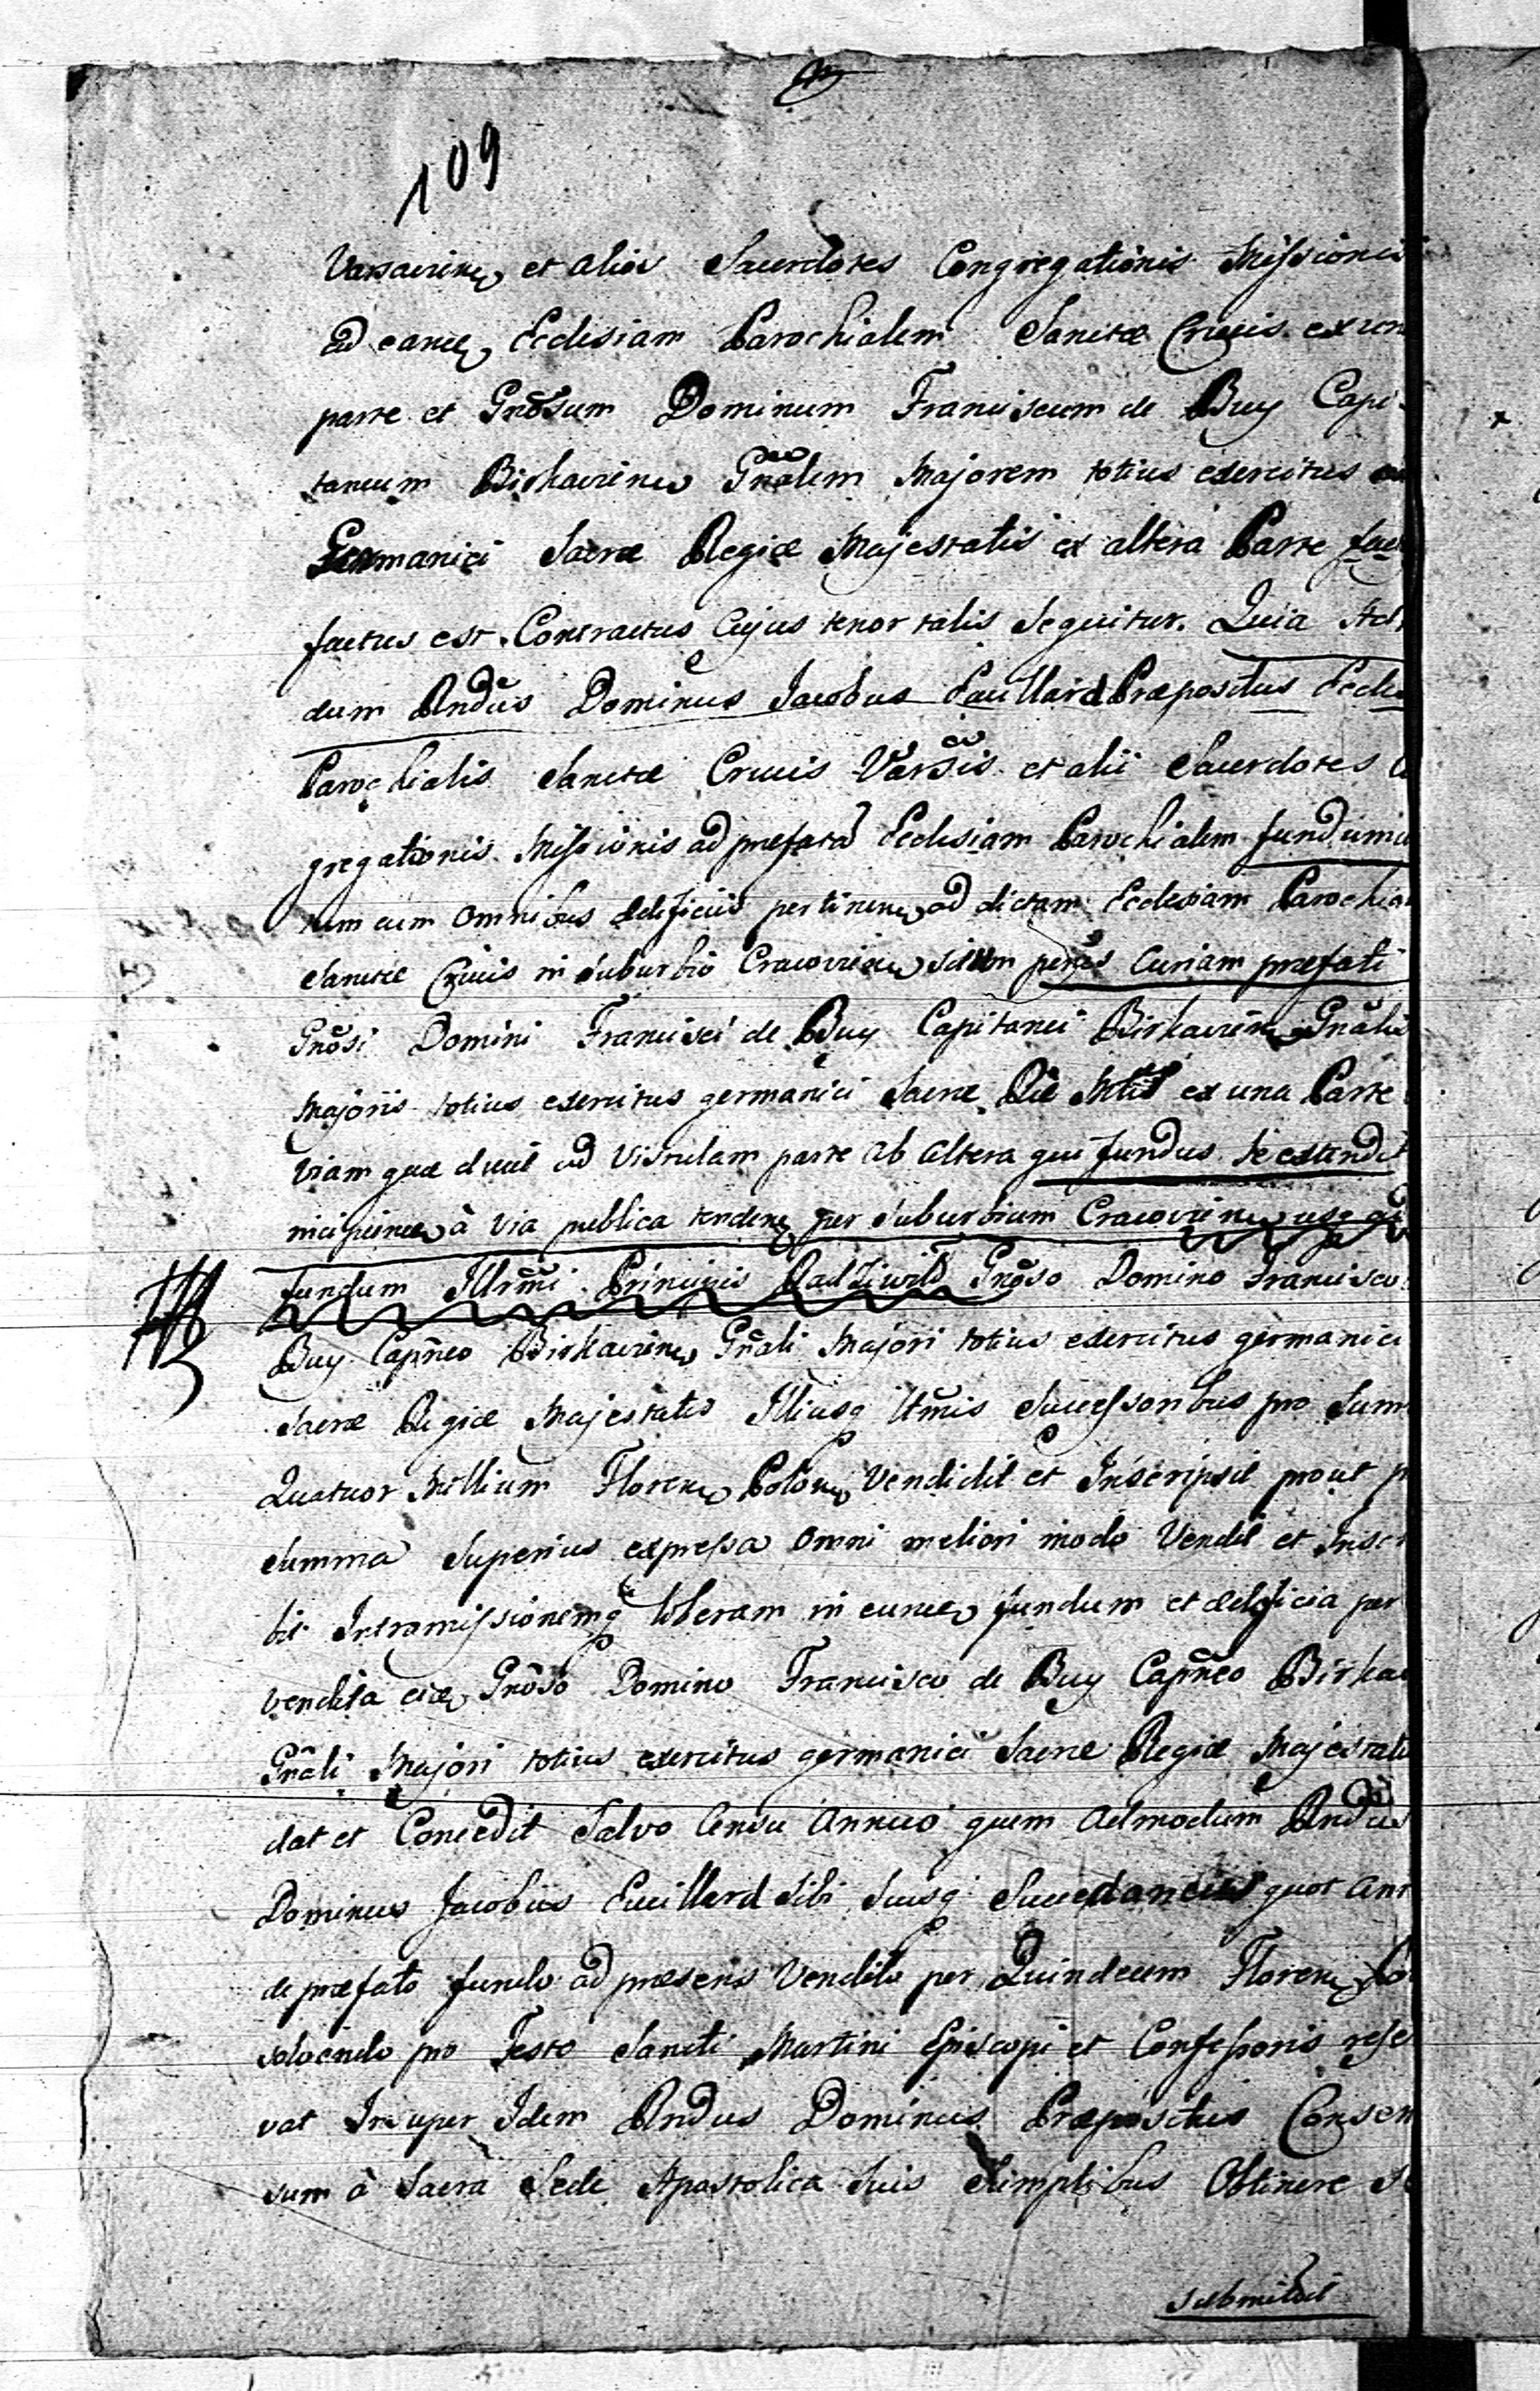 109
Varsavien, et alios Sacerdotes Congregationis Missionis
ad eand, Ecclesiam Parochialem Sanctæ Crucis ex un
parte et Gnõsum Dominum Franciscum de Buy Capi-
taneum Birkavien, Gnãlem Majorem totius exercitus
Germanici Sacræ Regiæ Majestatis ex altera Parte
factus est Contractus Cujus tenor talis Sequitur. Quia Ad
dum Rndus Dominus Jacobus Cuillard Præpositus Eccle
Parochialis Sanctæ Crucis Varsis et alii Sacerdotes C
gregationis Missionis ad præfatã Ecclesiam Parochialem fundum
tum cum omnibus ædificiis pertinen, ad dictam Ecclesiam Parochia
Sanctæ Crucis in Suburbio Cracovien, situm penes Curiam præfati
Gnõsi Domini Francisci de Buy Capitanei Birkavien, Gnãlis
Majoris totius exercitus germanici Sacræ Ræ Mtis ex una Parte
Viam quæ ducit ad Vistulam parte ab altera qui fundus se extendit
incipiendo à via publica tenden, per Suburbium Cracovien, usq ad
fundum Illrmi Principis Radziwil Gnõso Domino Francisco
Buy Capneo Birkavien, Gnãli Majori totius exercitus germanici
Sacræ Regiæ Majestatis Illiusq ltmis Successoribus pro Sum
Quatuor Millium Floren, Polon, Vendidit et Inscripsit prout p
Summa Superius expressa omni meliori modo Vendit et Inscr
bit Intromissionemq liberam in eund, fundum et ædificia per
vendita eid, Gnõso Domino Francisco de Buy Capneo Birka
Gnãli Majori totius exercitus germanici Sacræ Regiæ Majestati
dat et Concedit Salvo Censu Annuo quem Admodum Rndus
Dominus Jacobus Cuillard Sibi Suisq Succedaneis quot Ann
de præfato fundo ad præsens Vendito per Quindecim Floren, Po
solvendo pro Festo Sancti Martini Episcopi et Confessoris rese
vat Insuper Idem Rndus Dominus Præpositus Consen
sum à Sacra Sede Apostolica Suis Sumptibus Obtinere S
submittit